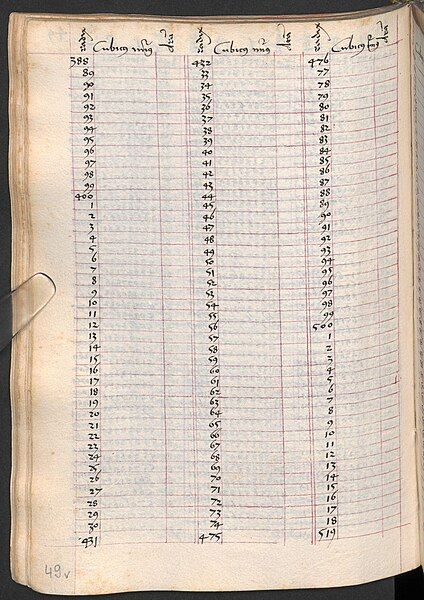 radix Cubicus dra radix Cubicus dra radix Cubicus dra
388 432 476
89 33 77
90 34 78
91 35 79
92 36 80
93 37 81
94 38 82
95 39 83
96 40 84
97 41 85
98 42 86
99 43 87
400 44 88
1 45 89
2 46 90
3 47 91
4 48 92
5 49 93
6 50 94
7 51 95
8 52 96
9 53 97
10 54 98
11 55 99
12 56 500
13 57 1
14 58 2
15 59 3
16 60 4
17 61 5
18 62 6
19 63 7
20 64 8
21 65 9
22 66 10
23 67 11
24 68 12
25 69 13
26 70 14
27 71 15
28 72 16
29 73 17
30 74 18
431 475 519
49v